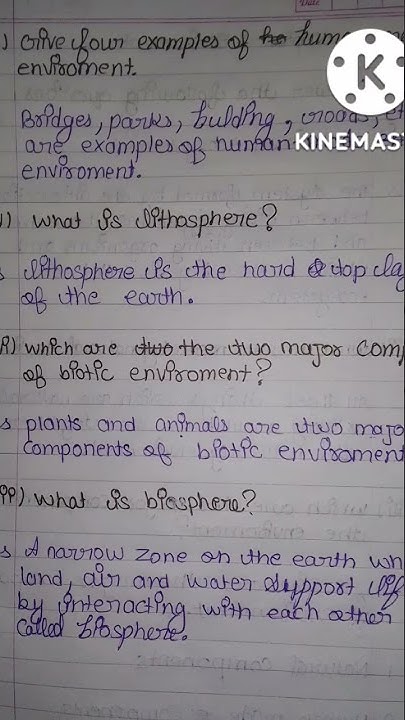 ) Give four examples of hum
enviroment.
K
KINEMAS
Bridges, parks, bulding, roads, et
are examples of human
enviroment.
) what is lithosphere?
s lithosphere is the hard top lay
of the earth.
) which are two the two major comp
of biotic enviroment?
s plants and animals are two majo
components of biotic enviroment
) what is biosphere?
s A narrow zone on the earth wh
land, air and water support lif
by interacting with each other
called biosphere.